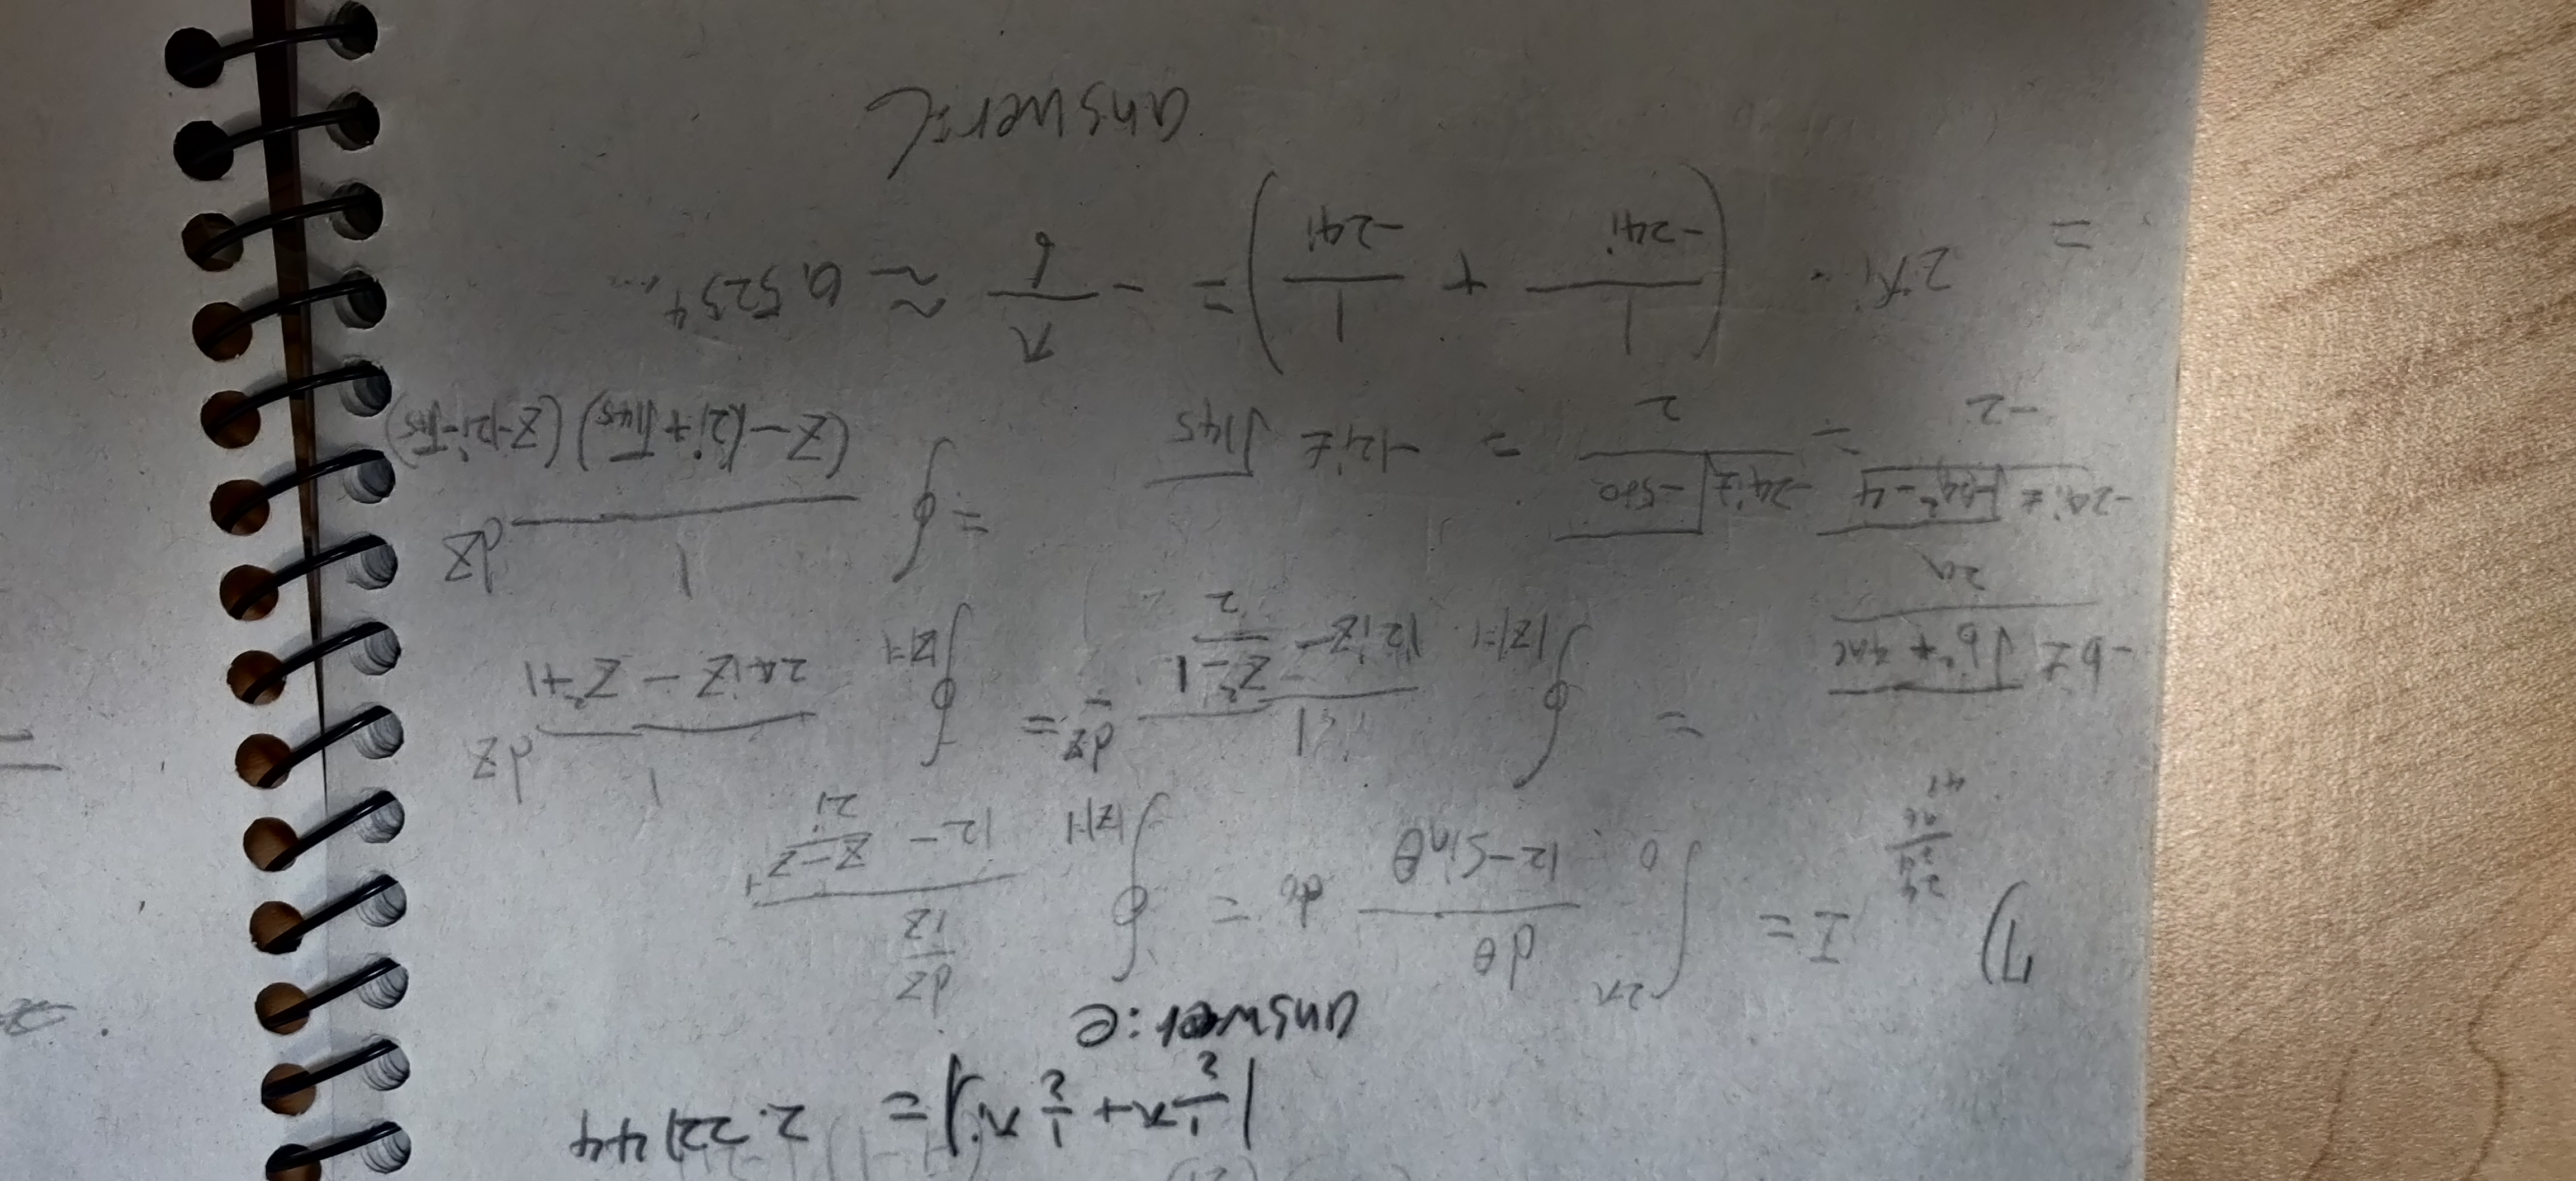 |1/2 π + 1/2 πi| = 2.22144
answer: e
7) I = ∫_0^{2π} dθ/(12 - sinθ) dθ = ∮_{|z|=1} (dz/iz)/(12 - (z - z^{-1})/2i)
24
24
96
48
= ∮_{|z|=1} 1/(12iz - (z² - 1)/2) dz = ∮_{|z|=1} 1/(24iz - z² + 1) dz
(-b ± √(b² + 4ac))/2a
= ∮ 1/((z - 12i + √145)(z - 12i - √145)) dz
(-24i ± √(-24² - 4))/-2 = (-24i ± √-580)/2 = -12i ± √145
= 2πi · (1/-24i + 1/-24i) = - π/6 ≈ 0.5234...
answer: C